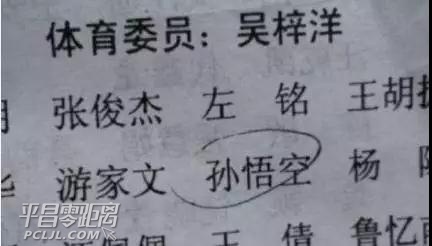 体育委员：吴梓洋
张俊杰 左 铭 王胡
游家文 孙悟空 杨
平昌零距离
PCLJL.COM
王 倩 鲁忆